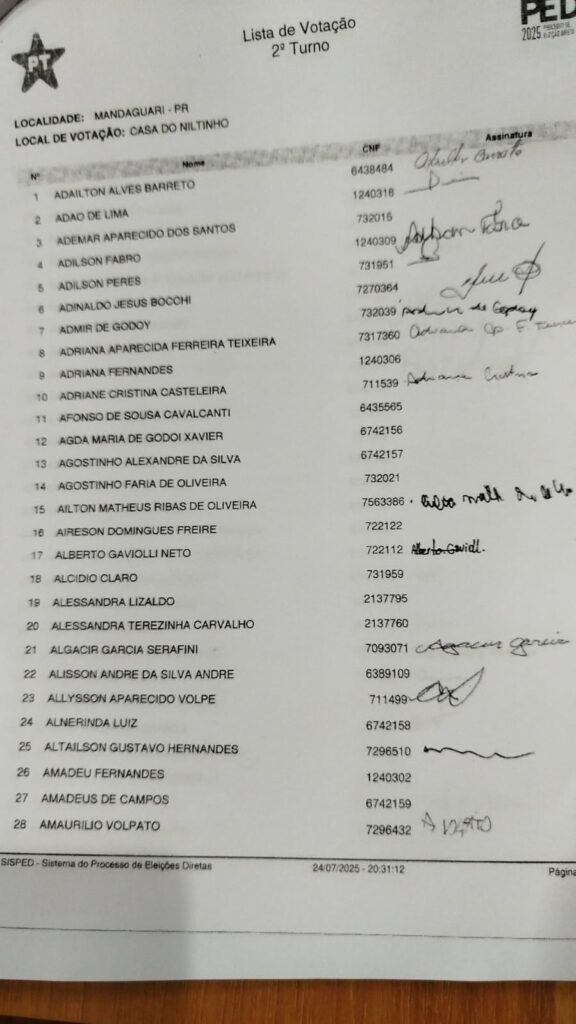 PT
Lista de Votação
2º Turno
PED
2025 PROCESSO DE ELEIÇÃO DIRETA
LOCALIDADE: MANDAGUARI - PR
LOCAL DE VOTAÇÃO: CASA DO NILTINHO
Nº Nome CNF Assinatura
1 ADAILTON ALVES BARRETO 6438484
2 ADAO DE LIMA 1240316
3 ADEMAR APARECIDO DOS SANTOS 732015
4 ADILSON FABRO 1240309
5 ADILSON PERES 731951
6 ADINALDO JESUS BOCCHI 7270364
7 ADMIR DE GODOY 732039 de Godoy
8 ADRIANA APARECIDA FERREIRA TEIXEIRA 7317360 Adriana Ap F
9 ADRIANA FERNANDES 1240306
10 ADRIANE CRISTINA CASTELEIRA 711539 Adriane Cristina
11 AFONSO DE SOUSA CAVALCANTI 6435565
12 AGDA MARIA DE GODOI XAVIER 6742156
13 AGOSTINHO ALEXANDRE DA SILVA 6742157
14 AGOSTINHO FARIA DE OLIVEIRA 732021
15 AILTON MATHEUS RIBAS DE OLIVEIRA 7563386
16 AIRESON DOMINGUES FREIRE 722122
17 ALBERTO GAVIOLLI NETO 722112 Alberto
18 ALCIDIO CLARO 731959
19 ALESSANDRA LIZALDO 2137795
20 ALESSANDRA TEREZINHA CARVALHO 2137760
21 ALGACIR GARCIA SERAFINI 7093071 Algacir Garcia
22 ALISSON ANDRE DA SILVA ANDRE 6389109
23 ALLYSSON APARECIDO VOLPE 711499
24 ALNERINDA LUIZ 6742158
25 ALTAILSON GUSTAVO HERNANDES 7296510
26 AMADEU FERNANDES 1240302
27 AMADEUS DE CAMPOS 6742159
28 AMAURILIO VOLPATO 7296432
SISPED - Sistema do Processo de Eleições Diretas 24/07/2025 - 20:31:12 Página